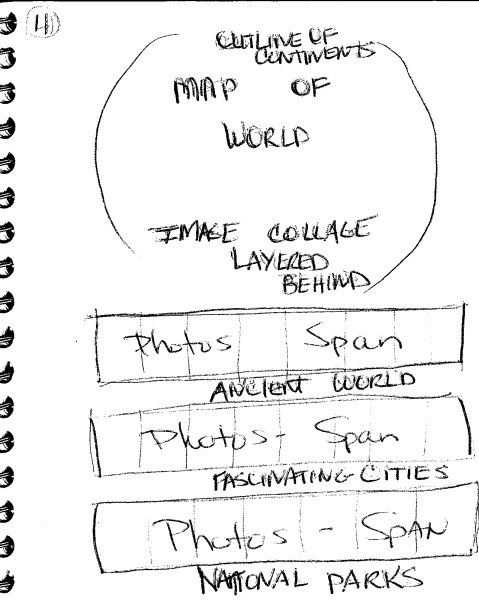 4)
OUTLINE OF
CONTINENTS
MAP OF
WORLD
IMAGE COLLAGE
LAYERED
BEHIND
Photos Span
ANCIENT WORLD
Photos- Span
FASCINATING CITIES
Photos - SPAN
NATIONAL PARKS